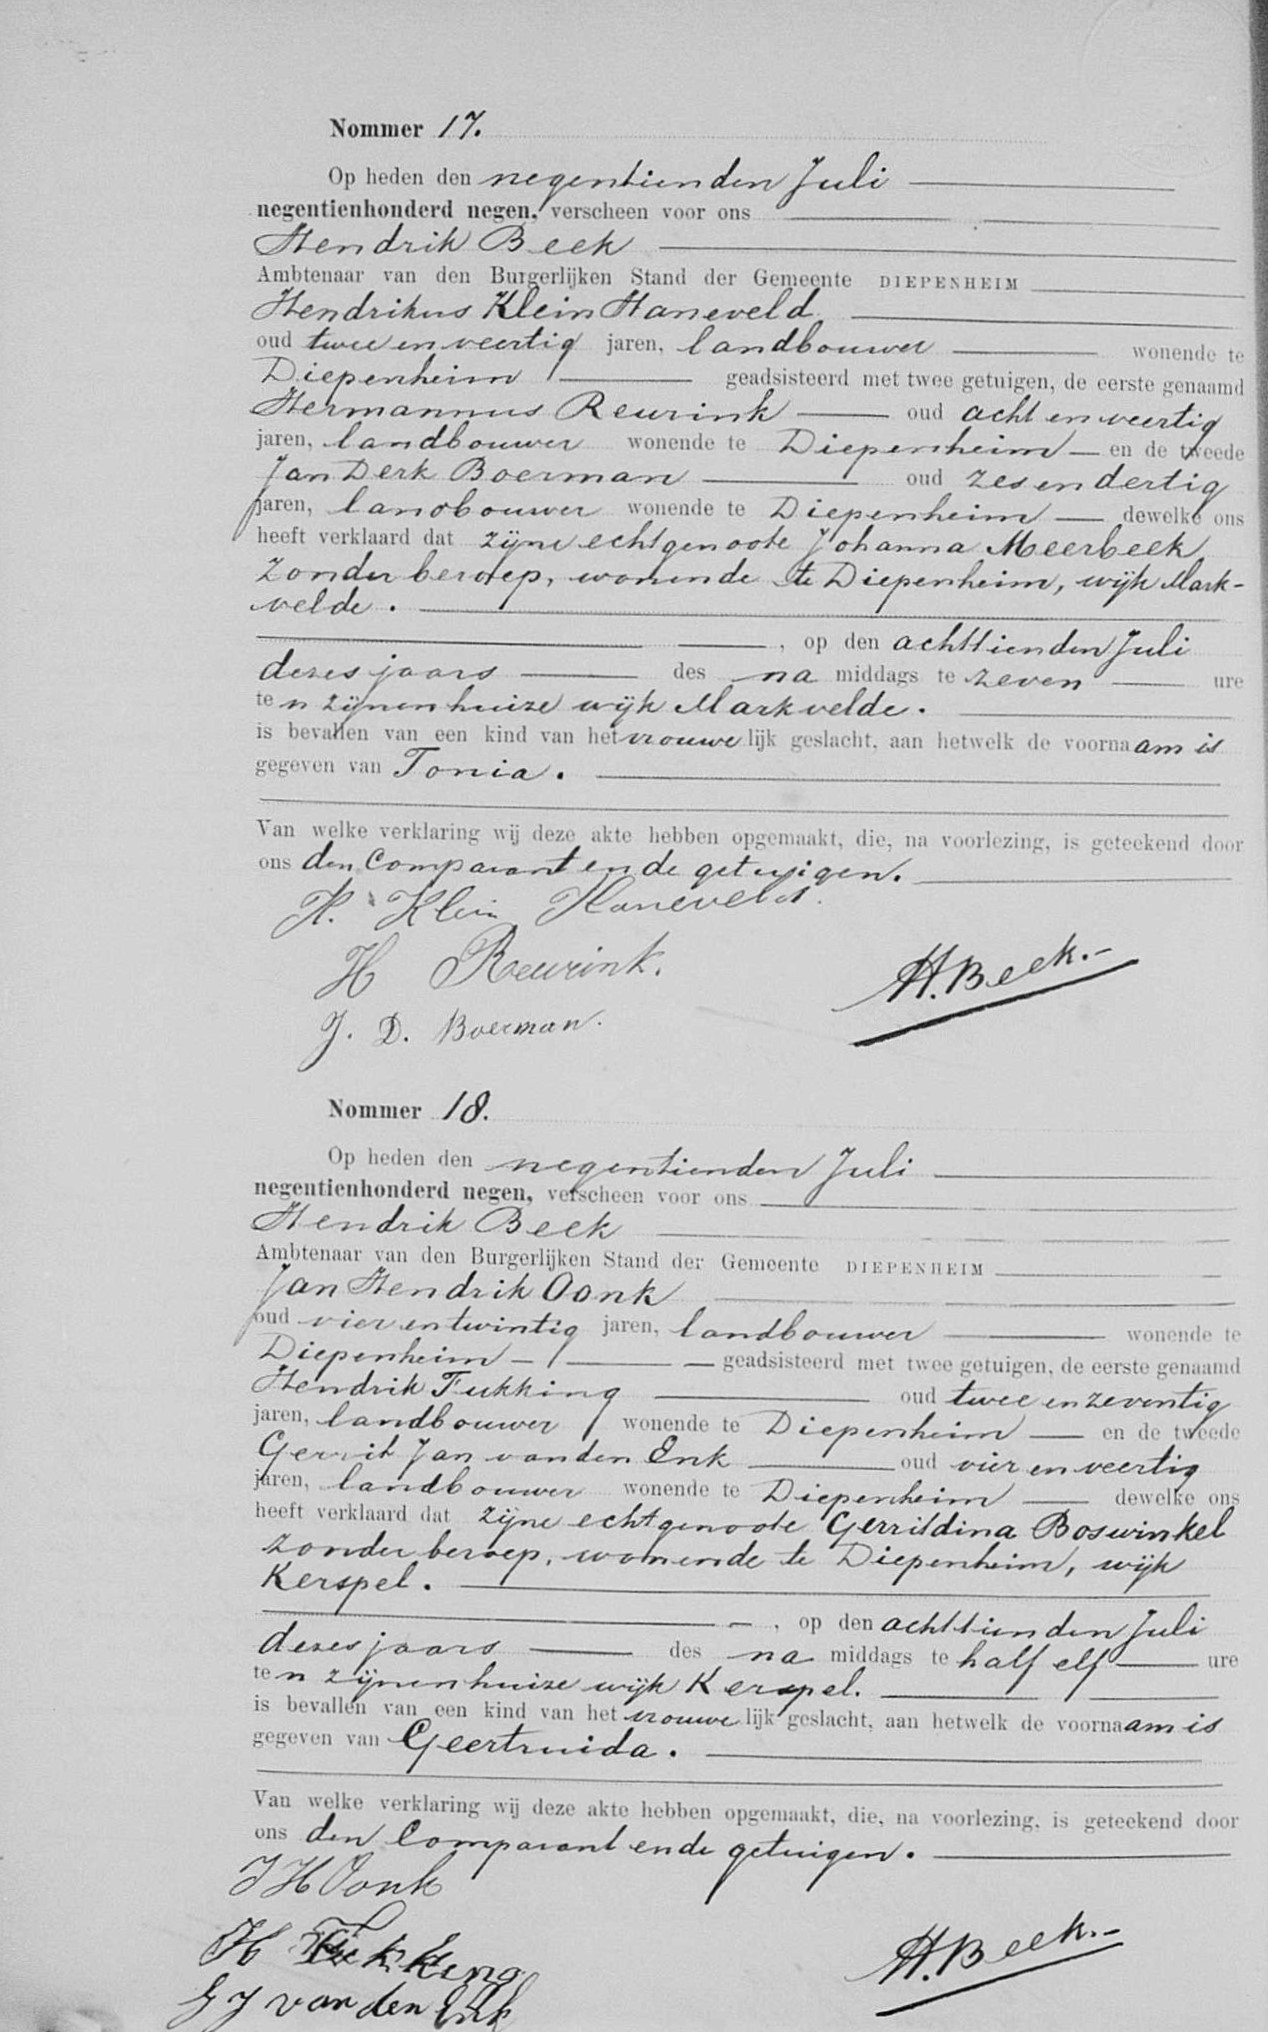 Nommer 17.
Op heden den negentienden Juli
negentienhonderd negen, verscheen voor ons
Hendrik Beek
Ambtenaar van den Burgerlijken Stand der Gemeente DIEPENHEIM
Hendrikus Klein Haneveld
oud twee en veertig jaren, landbouwer wonende te
Diepenheim geadsisteerd met twee getuigen, de eerste genaamd
Hermannus Reurink oud acht en veertig
jaren, landbouwer wonende te Diepenheim en de tweede
Jan Derk Boerman oud zes en dertig
jaren, landbouwer wonende te Diepenheim dewelke ons
heeft verklaard dat zijne echtgenoote Johanna Meerbeek,
zonder beroep, wonende te Diepenheim, wijk Mark-
velde.
, op den achttienden Juli
dezes jaars des na middags te zeven ure
ten zijnen huize wijk Markvelde.
is bevallen van een kind van het vrouwelijk geslacht, aan hetwelk de voornaam is
gegeven van Tonia.
Van welke verklaring wij deze akte hebben opgemaakt, die, na voorlezing, is geteekend door
ons den Comparant en de getuigen.
H. Klein Haneveld.
H Reurink.
H. Beek.-
J. D. Boerman.
Nommer 18.
Op heden den negentienden Juli
negentienhonderd negen, verscheen voor ons
Hendrik Beek
Ambtenaar van den Burgerlijken Stand der Gemeente DIEPENHEIM
Jan Hendrik Oonk
oud vier en twintig jaren, landbouwer wonende te
Diepenheim geadsisteerd met twee getuigen, de eerste genaamd
Hendrik Fukking oud twee en zeventig
jaren, landbouwer wonende te Diepenheim en de tweede
Gerrit Jan van den Enk oud vier en veertig
jaren, landbouwer wonende te Diepenheim dewelke ons
heeft verklaard dat zijne echtgenoote Gerritdina Boswinkel
zonder beroep, wonende te Diepenheim, wijk
Kerspel.
, op den achttienden Juli
dezes jaars des na middags te half elf ure
ten zijnen huize wijk Kerspel.
is bevallen van een kind van het vrouwelijk geslacht, aan hetwelk de voornaam is
gegeven van Geertruida.
Van welke verklaring wij deze akte hebben opgemaakt, die, na voorlezing, is geteekend door
ons den Comparant en de getuigen.
J H Oonk
H Fukking
H. Beek.-
G J van den Enk